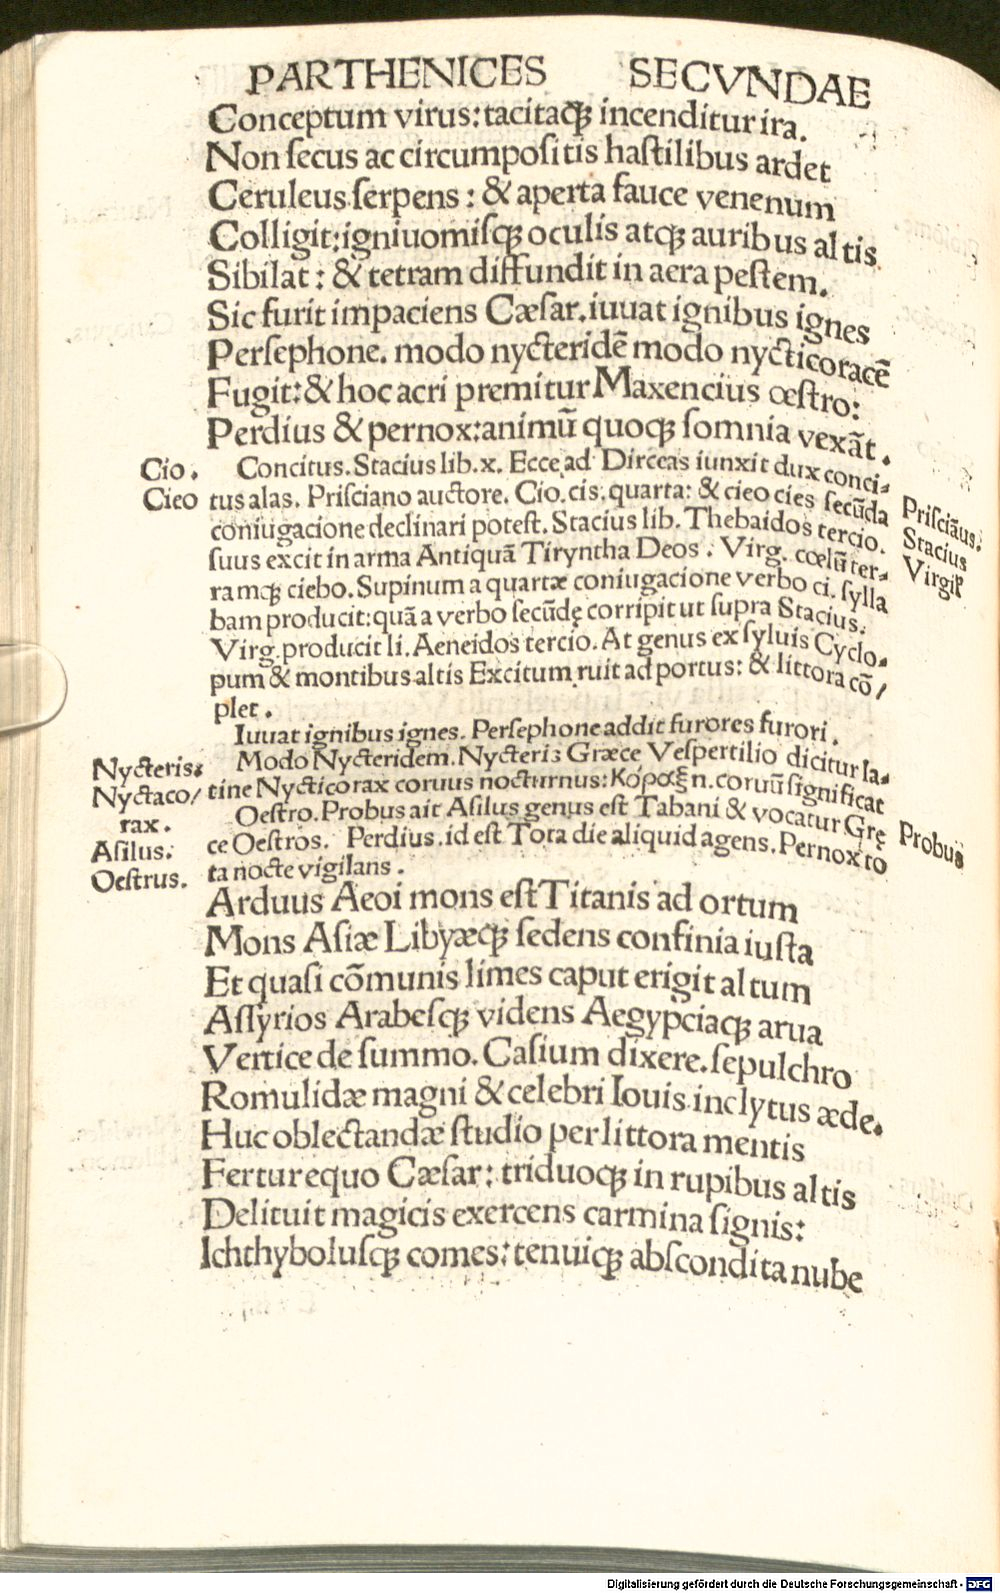 PARTHENICES SECVNDAE
Conceptum virus: tacitaqꝫ incenditur ira.
Non ſecus ac circumpoſitis haſtilibus ardet
Ceruleus ſerpens: & aperta fauce venenum
Colligit: igniuomiſqꝫ oculis atqꝫ auribus altis
Sibilat: & tetram diffundit in aera peſtem.
Sic furit impaciens Cæſar. iuuat ignibus ignes
Perſephone. modo nycteridē modo nycticoracē
Fugit: & hoc acri premitur Maxencius œſtro:
Perdius & pernox: animū quoqꝫ ſomnia vexāt.
Cio. Concitus. Stacius lib. x. Ecce ad Dirceas iunxit dux conci-
Cieo tus alas. Priſciano auctore. Cio. cis. quarta: & cieo cies ſecūda Priſciāus.
coniugacione declinari poteſt. Stacius lib. Thebaidos tercio. Stacius
ſuus excit in arma Antiquā Tiryntha Deos. Virg. cœlū ter- Virgiƚ
ramqꝫ ciebo. Supinum a quartæ coniugacione verbo ci. ſylla
bam producit: quā a verbo ſecūdę corripit ut ſupra Stacius.
Virg. producit li. Aeneidos tercio. At genus ex ſyluis Cyclo-
pum & montibus altis Excitum ruit ad portus: & littora cō/
plet.
Iuuat ignibus ignes. Perſephone addit furores furori.
Nycteris. Modo Nycteridem. Nycteris Græce Veſpertilio dicitur la-
Nyctaco/ tine Nycticorax coruus nocturnus: Κόραξ n. coruū ſignificat
rax. Oeſtro. Probus ait Aſilus genus eſt Tabani & vocatur Grę Probus
Aſilus. ce Oeſtros. Perdius. id eſt Tota die aliquid agens. Pernox to
Oeſtrus. ta nocte vigilans.
Arduus Aeoi mons eſt Titanis ad ortum
Mons Aſiæ Libyæqꝫ ſedens confinia iuſta
Et quaſi cōmunis limes caput erigit altum
Aſſyrios Arabeſqꝫ videns Aegypciaqꝫ arua
Vertice de ſummo. Caſium dixere. ſepulchro
Romulidæ magni & celebri Iouis inclytus æde.
Huc oblectandæ ſtudio per littora mentis
Fertur equo Cæſar: triduoqꝫ in rupibus altis
Delituit magicis exercens carmina ſignis:
Ichthyboluſqꝫ comes: tenuiqꝫ abſcondita nube
Digitalisierung gefördert durch die Deutsche Forschungsgemeinschaft - DFG